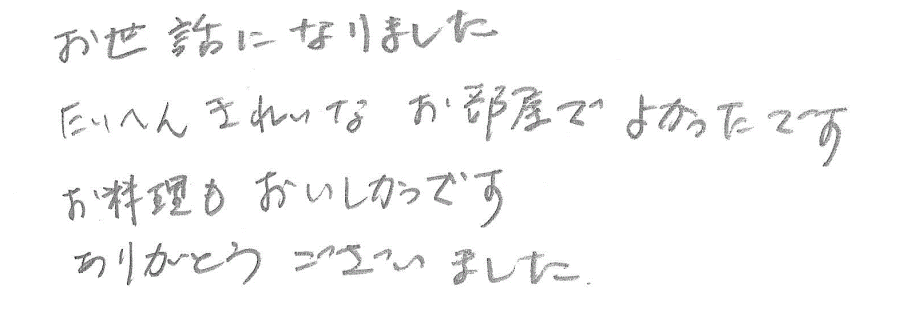 お世話になりました
たいへんきれいなお部屋でよかったです
お料理もおいしかつです
ありがとうございました.